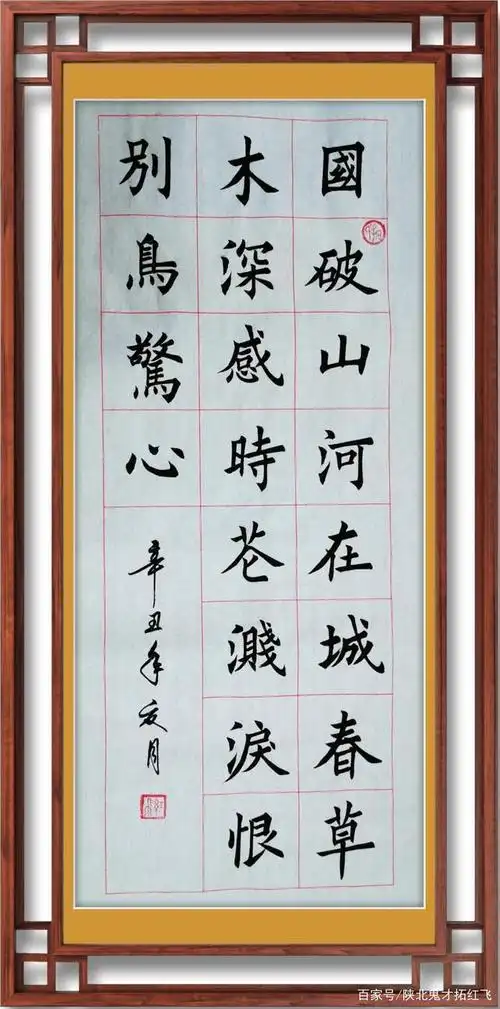 國破山河在城春草
木深感時花濺淚恨
別鳥驚心
辛丑年夏月
百家号/陕北鬼才拓红飞